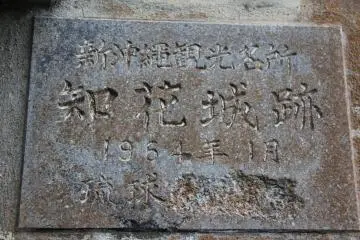 新沖縄観光名所
知花城跡
1954年1月
琉球